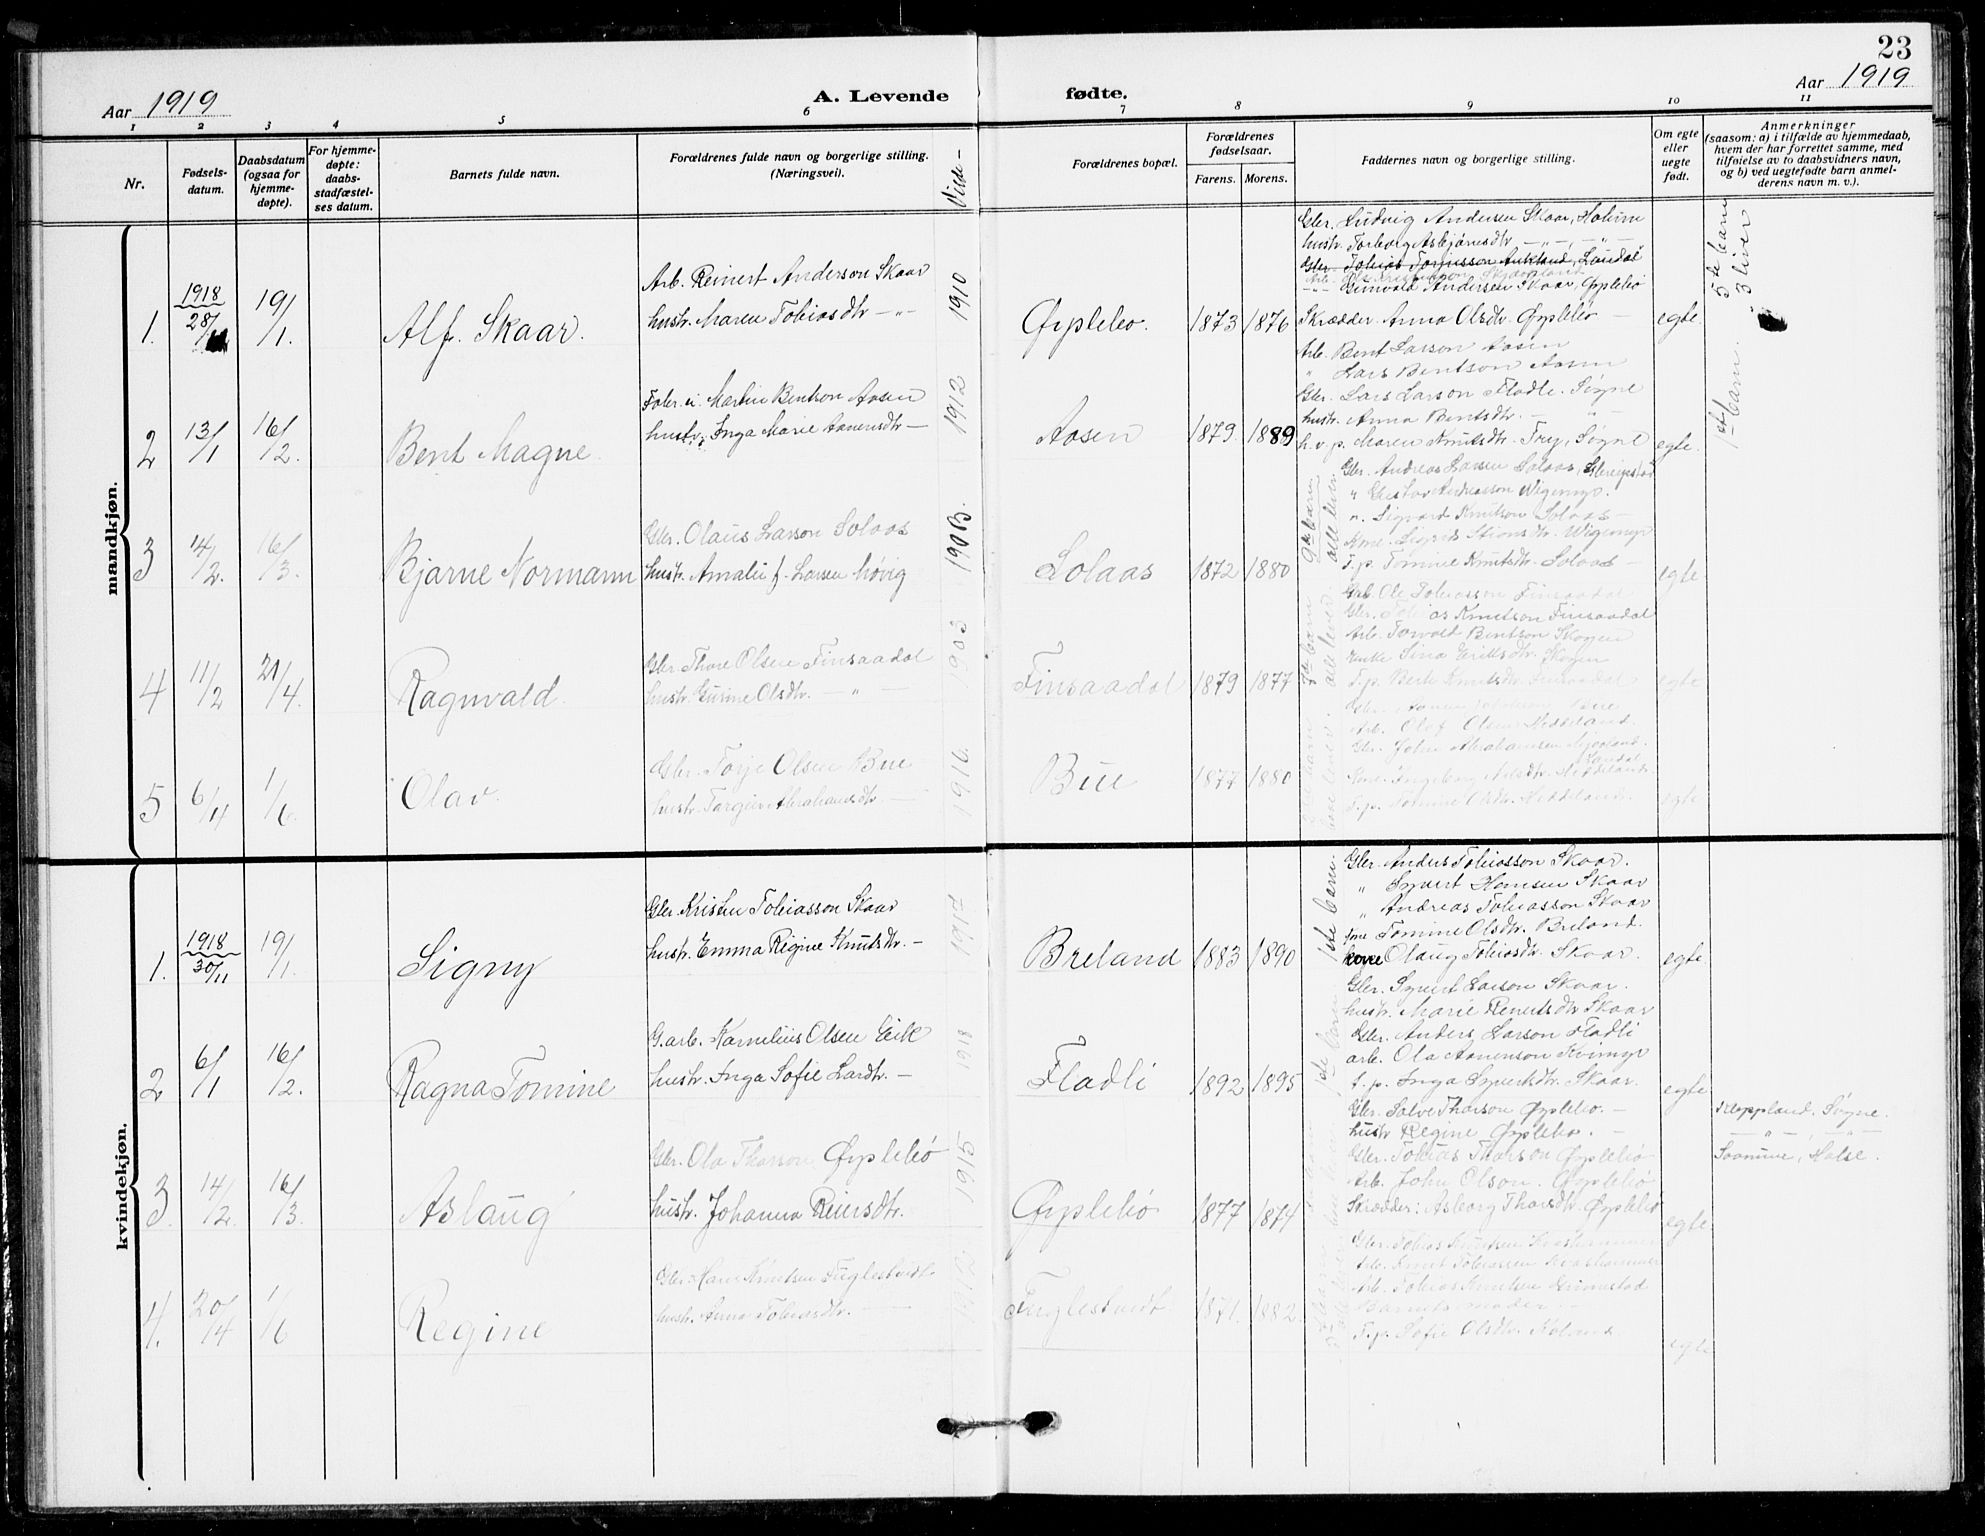 23
Aar 1919
A. Levende
fødte.
Aar 1919
1 2 3 4 5 6 7 8 9 10 11
Nr.
Fødsels-
datum.
Daabsdatum
(ogsaa for
hjemme-
døpte).
For hjemme-
døpte:
daabs-
stadfæstel-
ses datum.
Barnets fulde navn.
Forældrenes fulde navn og borgerlige stilling.
(Næringsvei).
Viede -
Forældrenes bopæl.
Forældrenes
fødselsaar.
Farens. Morens.
Faddernes navn og borgerlige stilling.
Om egte
eller
uegte
født.
Anmerkninger
(saasom: a) i tilfælde av hjemmedaab,
hvem der har forrettet samme, med
tilføielse av to daabsvidners navn,
og b) ved uegtefødte barn anmel-
derens navn m. v.).
mandkjøn.
1. 1918 28/ 19/1. Alf. Skaar.
Arb. Reinert Anderson Skaar
hustr. Maren Tobiasdtr — " —
1910
Øyplebø. 1873 1876
Gbr. Ludvig Andersen Skaar, Holum
hustr. Torborg Asbjørnsdtr — " —, — " —
Gbr. Tobias Torjusson Aukland, Laudal
Gunvald Andersen Skaar, Øyplebø
Skrædder. Anna Olsdtr. Øyplebø —
egte.
5te barn
3 liver
2 13/1 16/2. Bent Magne.
Forer. Martin Bentson Aasen
hustr. Inga Marie Aanensdtr —
1912
Aasen 1879. 1889
Arb. Bent Larson Aasen
" Lars Bentson Aasen
Gbr. Lars Larson Fladli. Søgne
hustr. Anna Bentsdtr. — " —
h.v.p. Maren Knutsdtr. Try, Søgne
egte.
1ste barn.
3 14/2. 16/3. Bjarne Normann
Gbr. Olaus Larson Solaas
hustr. Amalie f. Larsen Høvig
1903.
Solaas 1872 1880
Gbr. Andreas Larsen Solaas,
" Gustav Andreasson Wigemyr.
". Sigvard Knutson Solaas —
Kone. Sigrid Wigemyr
T.p. Tomine Knutsdtr. Solaas —
9de barn
alle lever.
egte
4 11/2 21/4. Ragnvald.
Gbr. Thore Olsen Finsaadal
hustr. Gurine Olsdtr. — " —
1903
Finsaadal 1879 1877
Arb. Ole Tobiasson Finsaadal
Gbr. Tobias Knutson Finsaadal
Arb. Torvald Bentson Skogen
Enke Sina Eriksdtr. Skogen
T.p. Berte Knutsdtr. Finsaadal
7de barn
alle lever.
egte
5 6/4 1/6. Olav.
Gbr. Torje Olsen Bue
hustr. Torgun Abrahamsdtr. —
1916.
Bue 1877 1880
Arb. Olaf Olsen Heddeland.
Gbr. John Abrahamsen
Laudal
Kone. Ingeborg Heddeland
T.p. Tomine Olsdtr. Heddeland.
egte
kvindekjøn.
1. 1918 30/11 19/1. Signy
Gbr. Kristen Tobiasson Skaar
hustr. Emma Regine Knutsdtr. —
Breland 1883 1890
Gbr. Anders Tobiasson Skaar.
" Syvert Hansen Skaar
" Andreas Tobiasson Skaar
frue Tomine Olsdtr. Breland.
kone Olaug Tobiasdtr. Skaar.
1ste barn.
egte.
2 6/1 16/2. Ragna Tomine
G.arb. Kornelius Olsen Eik
hustr. Inga Sofie Larsdtr. —
1918
Fladli 1892 1895
Gbr. Syvert Larson Skaar.
hustr. Marie Reinertsdtr Skaar
Gbr. Anders Larson Fladli
arb. Ola Aanenson Kvimyr
t.p. Inga Syvertsdtr. Skaar.
1ste barn
egte
3 14/2. 16/3. Aslaug
Gbr. Ola Thorson Øyplebø
hustr. Johanna Reiersdtr.
1915
Øyplebø 1877 1874
Gbr. Salve Thorson Øyplebø. —
hustr Regine Øyplebø. —
Gbr. Tobias Thorson Øyplebø
Arb. John Olson. Øyplebø
Skrædder: Asborg Thorsdtr. Øyplebø
egte
Kleppland, Søgne.
— " —, — " —
Toanme, Halse.
4. 20/4 1/6 Regine
Gbr Hans Knutsen Fuglestvedt.
hustr. Anna Tobiasdtr. —
1912
Fuglestvedt 1871. 1882.
Gbr. Tobias Knutsen
Arb. Knut Tobiassen
Arb. Tobias Knutsen Grimestad
Barnets moder —
T.p. Sofie Olsdtr.
egte